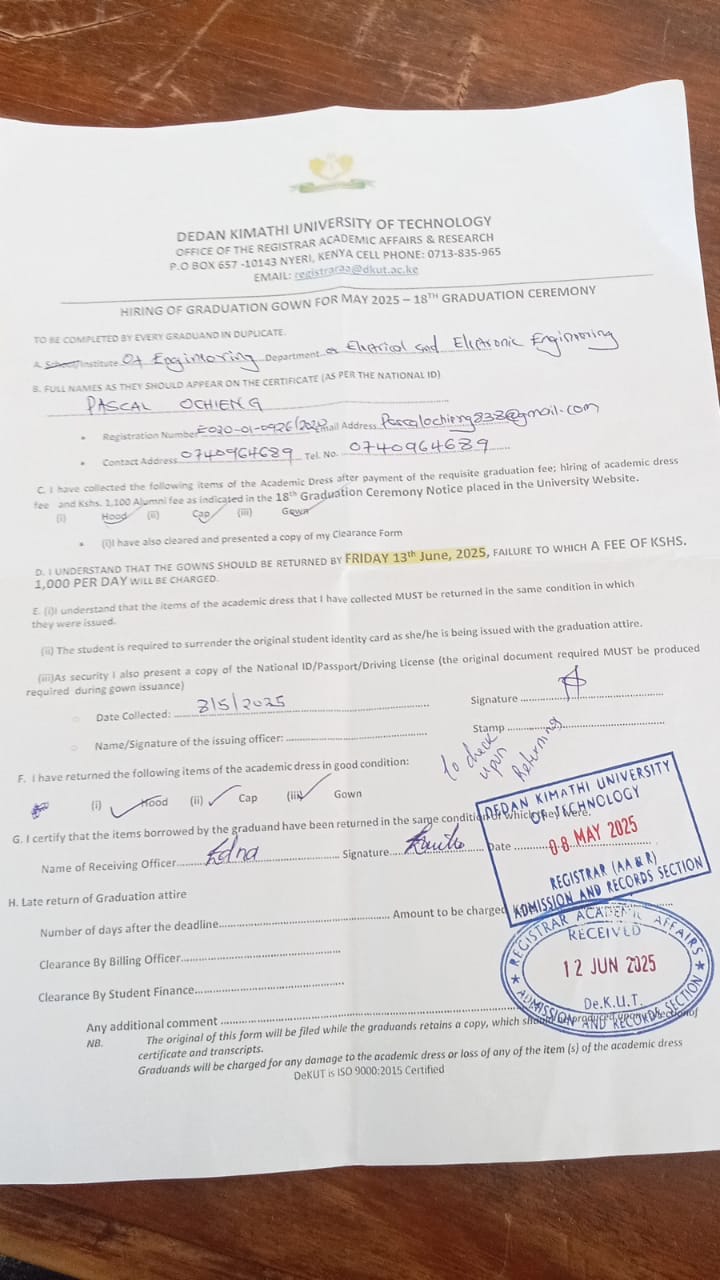 DEDAN KIMATHI UNIVERSITY OF TECHNOLOGY
OFFICE OF THE REGISTRAR ACADEMIC AFFAIRS & RESEARCH
P.O BOX 657 -10143 NYERI, KENYA CELL PHONE: 0713-835-965
EMAIL: registraraa@dkut.ac.ke
HIRING OF GRADUATION GOWN FOR MAY 2025 – 18TH GRADUATION CEREMONY
TO BE COMPLETED BY EVERY GRADUAND IN DUPLICATE.
A. School/Institute Of Engineering Department of Electrical and Electronic Engineering
B. FULL NAMES AS THEY SHOULD APPEAR ON THE CERTIFICATE (AS PER THE NATIONAL ID)
PASCAL OCHIENG
• Registration Number Email Address Pascalochieng838@gmail.com
• Contact Address 0740964689 Tel. No. 0740964689
C. I have collected the following items of the Academic Dress after payment of the requisite graduation fee; hiring of academic dress
fee and Kshs. 1,100 Alumni fee as indicated in the 18th Graduation Ceremony Notice placed in the University Website.
(i) Hood (ii) Cap (iii) Gown
• (i)I have also cleared and presented a copy of my Clearance Form
D. I UNDERSTAND THAT THE GOWNS SHOULD BE RETURNED BY FRIDAY 13th June, 2025, FAILURE TO WHICH A FEE OF KSHS.
1,000 PER DAY WILL BE CHARGED.
E. (i)I understand that the items of the academic dress that I have collected MUST be returned in the same condition in which
they were issued.
(ii) The student is required to surrender the original student identity card as she/he is being issued with the graduation attire.
(iii)As security I also present a copy of the National ID/Passport/Driving License (the original document required MUST be produced
required during gown issuance)
Date Collected: 8/5/2025 Signature
Name/Signature of the issuing officer: Stamp
to check
upon
Returning
F. I have returned the following items of the academic dress in good condition:
(i) Hood (ii) Cap (iii) Gown
G. I certify that the items borrowed by the graduand have been returned in the same condition of which they were.
Name of Receiving Officer Edna Signature Date
DEDAN KIMATHI UNIVERSITY
OF TECHNOLOGY
08 MAY 2025
REGISTRAR (AA & R)
ADMISSION AND RECORDS SECTION
H. Late return of Graduation attire
Number of days after the deadline Amount to be charged
Clearance By Billing Officer
Clearance By Student Finance
REGISTRAR ACADEMIC AFFAIRS
RECEIVED
12 JUN 2025
De.K.U.T.
ADMISSION AND RECORDS SECTION
Any additional comment
NB. The original of this form will be filed while the graduands retains a copy, which should be produced upon collection of
certificate and transcripts.
Graduands will be charged for any damage to the academic dress or loss of any of the item (s) of the academic dress
DeKUT is ISO 9000:2015 Certified